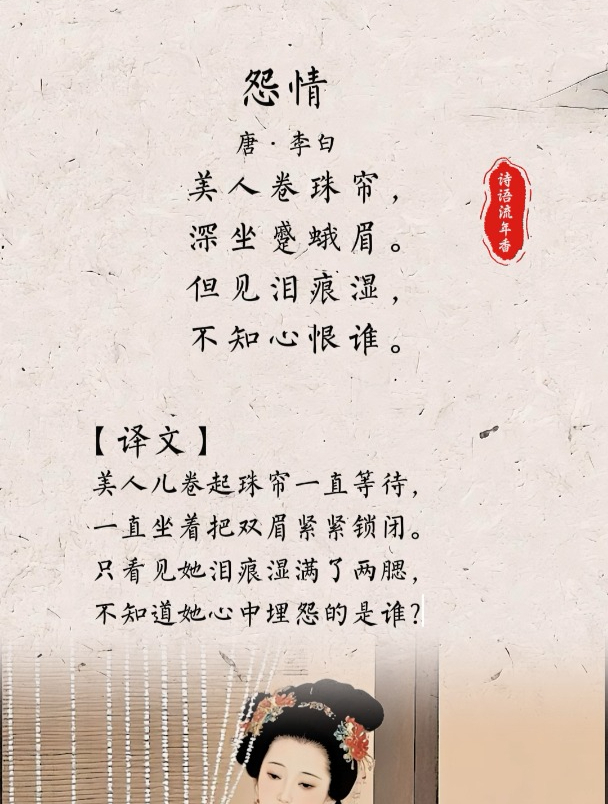 怨情
唐·李白
美人卷珠帘，
深坐蹙蛾眉。
但见泪痕湿，
不知心恨谁。
诗语流年香
【译文】
美人儿卷起珠帘一直等待，
一直坐着把双眉紧紧锁闭。
只看见她泪痕湿满了两腮，
不知道她心中埋怨的是谁？